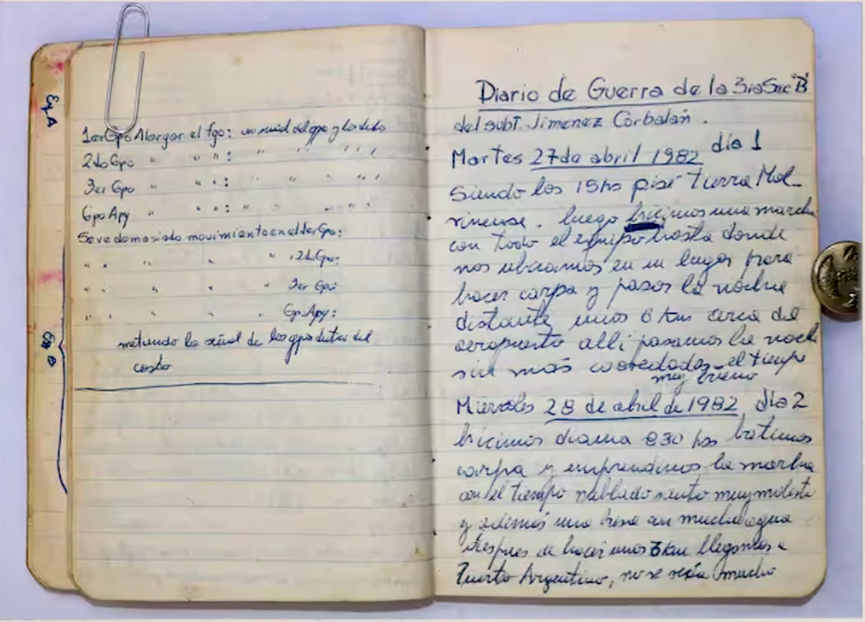 Eq A
Eq B
1er Gpo Alargar el fgo: un señal del gpo y los dedo
2do Gpo " " " : " " " " "
3er Gpo " " " : " " " " "
Gpo Apy " " " : " " " " "
Se ve demasiado movimiento en el 1er Gpo:
" " " " " 2do Gpo:
" " " " 3er Gpo:
" " " " Gpo Apy:
metiendo la señal de los gpos dentro del
casco
Diario de Guerra de la 3ra Sec "B"
del subt. Jimenez Corbalán.
Martes 27 de abril 1982 día 1
Siendo las 15hs pisé tierra Mal-
vinense. luego hicimos una marcha
con todo el equipo hasta donde
nos ubicamos en un lugar para
hacer carpa y pasar la noche
distante unos 6 km cerca del
aeropuerto alli pasamos la noche
sin más novedades el tiempo
muy bueno
Miercoles 28 de abril de 1982 día 2
hicimos diana 830 hs batimos
carpa y emprendimos la marcha
con el tiempo nublado viento muy molesto
y además una con mucha agua
despues de hacer unos 8 km llegamos a
Puerto Argentino, no se veía mucho